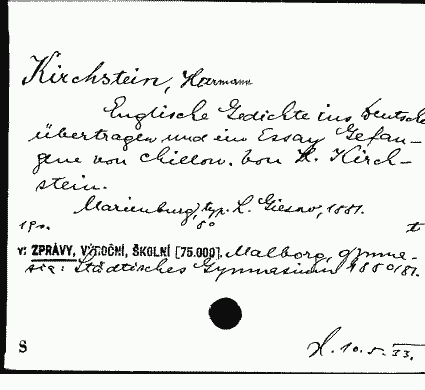 Kirchstein, Hermann
Englische Gedichte ins Deutsche
übertragen und ein Essay Gefan-
gene von Chillon. Von H. Kirch-
stein.
Marienburg, typ. L. Giesow, 1881.
19 s. 8° t
v: ZPRÁVY, VÝROČNÍ, ŠKOLNÍ [75.000], Malborg, gymna-
sia: Städtisches Gymnasium 1880/81.
S
H. 10.5.33.